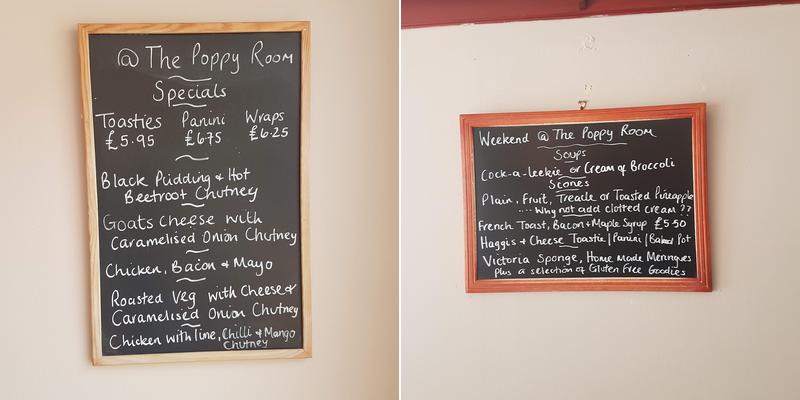 @ The Poppy Room
Specials
Toasties Panini Wraps
£5.95 £6.75 £6.25
Black Pudding & Hot
Beetroot Chutney
Goats cheese with
Caramelised Onion Chutney
Chicken, Bacon & Mayo
Roasted Veg with Cheese &
Caramelised Onion Chutney
Chicken with Lime, Chilli & Mango
Chutney
Weekend @ The Poppy Room
Soups
Cock-a-Leekie or Cream of Broccoli
Scones
Plain, Fruit, Treacle or Toasted Pineapple
.... Why not add clotted cream ??
French Toast, Bacon & Maple Syrup £5.50
Haggis & Cheese Toastie | Panini | Baked Pot
Victoria Sponge, Home Made Meringues
Plus a selection of Gluten Free Goodies